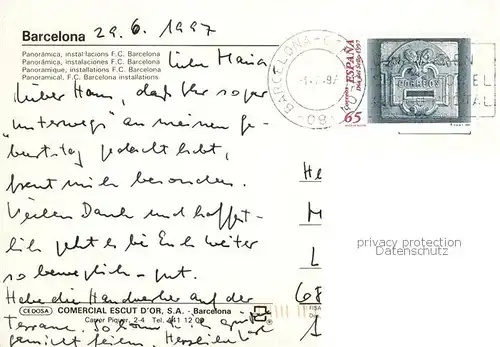 Barcelona 29.6.1997
Panoràmica, instal·lacions F.C. Barcelona
Panorámica, instalaciones F.C. Barcelona
Panoramique, installations F.C. Barcelona
Panoramical, F.C. Barcelona installations
Liebe Maria
lieber Hans, daß Ihr sogar
"unterwegs" an meinen Ge-
burtstag gedacht habt,
freut mich besonders.
Vielen Dank und hoffent-
lich geht es bei Euch weiter
so beweglich - gut.
Habe die Handwerker auf der
Terrasse. So kann ich
feiern. Herzlichst
BARCELONA
-1-7-97
08
ESPAÑA
Correos
CORREOS
65
privacy protection
Datenschutz
He
M
L
68
1
CEDOSA
COMERCIAL ESCUT D'OR, S.A. - Barcelona
Carrer Piquer, 2-4 Tel. 441 12 09
FISA